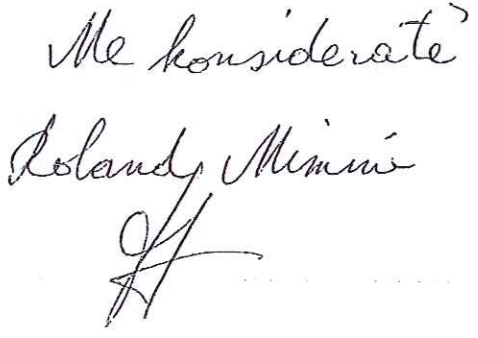 Me konsideratë
Roland Mimini